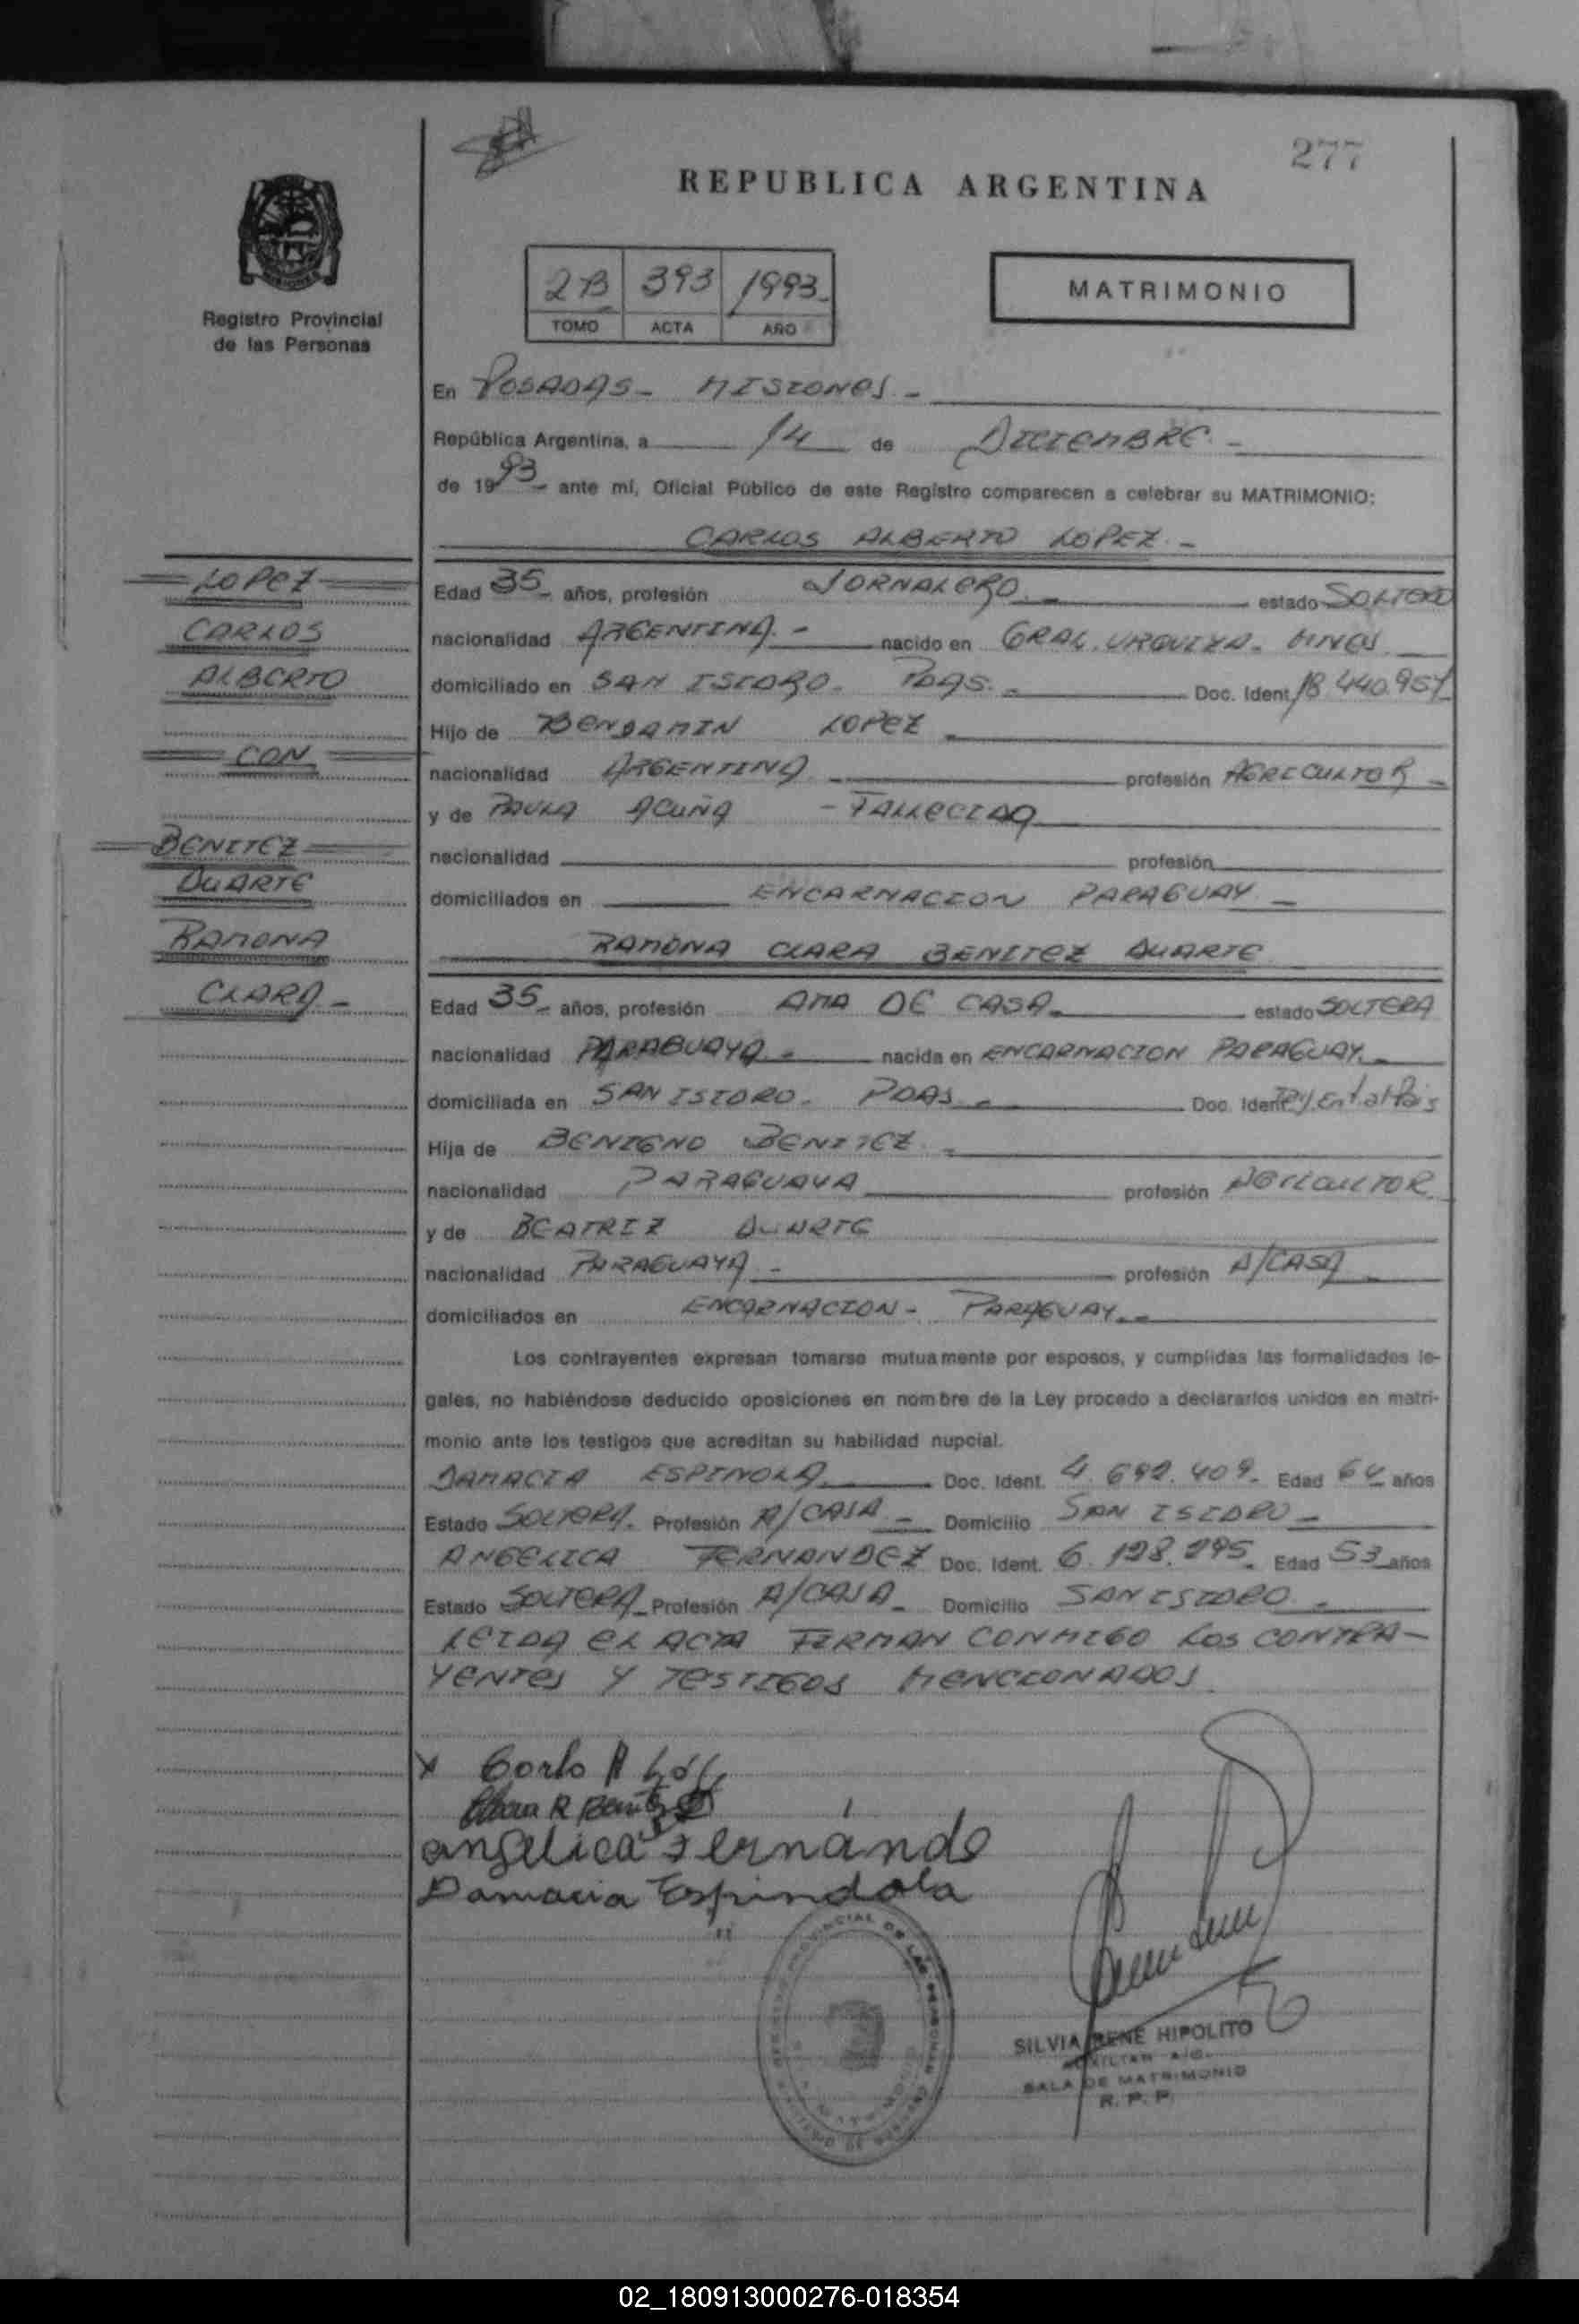 277
REPUBLICA ARGENTINA
Registro Provincial
de las Personas
2B 393 1993
TOMO ACTA AÑO
MATRIMONIO
En POSADAS - MISIONES -
República Argentina, a 14 de DICIEMBRE -
de 1993 - ante mí, Oficial Público de este Registro comparecen a celebrar su MATRIMONIO:
CARLOS ALBERTO LOPEZ -
LOPEZ
CARLOS
ALBERTO
CON
BENITEZ
DUARTE
RAMONA
CLARA -
Edad 35 - años, profesión JORNALERO - estado SOLTERO
nacionalidad ARGENTINA - nacido en GRAL. URQUIZA -
domiciliado en SAN ISIDRO - PDAS. - Doc. Ident. 18.440.957
Hijo de BENJAMIN LOPEZ -
nacionalidad ARGENTINA - profesión AGRICULTOR -
y de PAULA ACUÑA - FALLECIDA
nacionalidad profesión
domiciliados en ENCARNACION PARAGUAY -
RAMONA CLARA BENITEZ DUARTE
Edad 35 - años, profesión AMA DE CASA - estado SOLTERA
nacionalidad PARAGUAYA - nacida en ENCARNACION PARAGUAY. -
domiciliada en SAN ISIDRO - PDAS - Doc. Ident.
Hija de BENIGNO BENITEZ -
nacionalidad PARAGUAYA profesión AGRICULTOR
y de BEATRIZ DUARTE
nacionalidad PARAGUAYA - profesión A/CASA
domiciliados en ENCARNACION - PARAGUAY. -
Los contrayentes expresan tomarse mutuamente por esposos, y cumplidas las formalidades le-
gales, no habiéndose deducido oposiciones en nombre de la Ley procedo a declararlos unidos en matri-
monio ante los testigos que acreditan su habilidad nupcial.
DAMACIA ESPINOLA Doc. Ident. 4.692.409 - Edad 64 años
Estado SOLTERA - Profesión A/CASA - Domicilio SAN ISIDRO -
ANGELICA FERNANDEZ Doc. Ident. 6.128.295 - Edad 53 años
Estado SOLTERA - Profesión A/CASA - Domicilio SAN ISIDRO -
LEIDA EL ACTA FIRMAN CONMIGO LOS CONTRA-
YENTES Y TESTIGOS MENCIONADOS
x Carlo A
R Benitez
angelica Fernánde
Damacia Espindola
SILVIA RENE HIPOLITO
AUXILIAR A/C.
SALA DE MATRIMONIO
R. P. P.
02_180913000276-018354